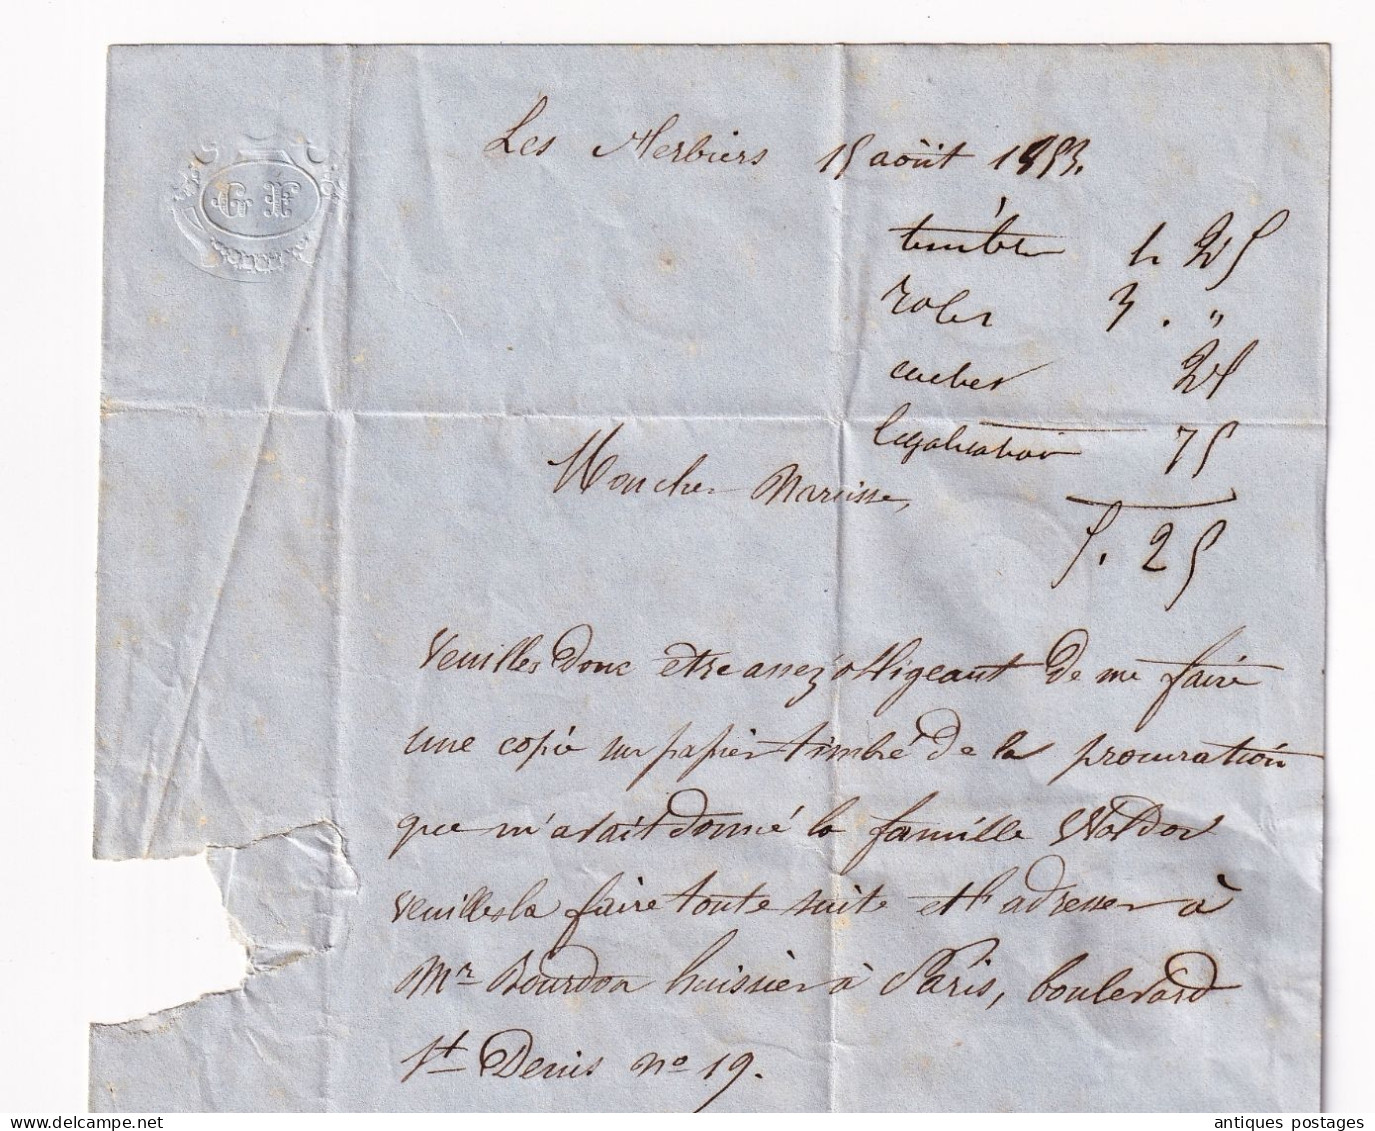 G H
Les Herbiers 15 août 1853.
timbre 1. 25
roles 3 . "
cachet 25
legalisation 75
5. 25
Mon cher Narcisse,
Veuilles donc être assez obligeant de me faire
une copie sur papier timbré de la procuration
que m'avait donné la famille Waldor
veuilles la faire toute suite et l'adresser à
Mr Bourdon huissier à Paris, boulevard
St Denis no 19.
antiques postages